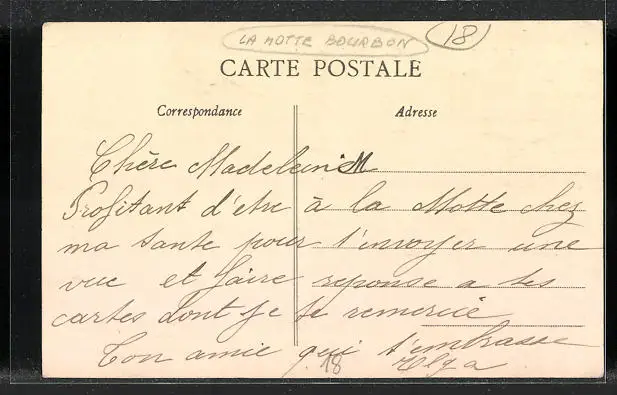 LA MOTTE BOURBON
18
CARTE POSTALE
Correspondance
Adresse
Chère Madeleine M
Profitant d'etre à la Motte chez
ma tante pour t'envoyer une
vue et faire reponse a tes
cartes dont je te remercie
Ton amie qui t'embrasse
18
Olga